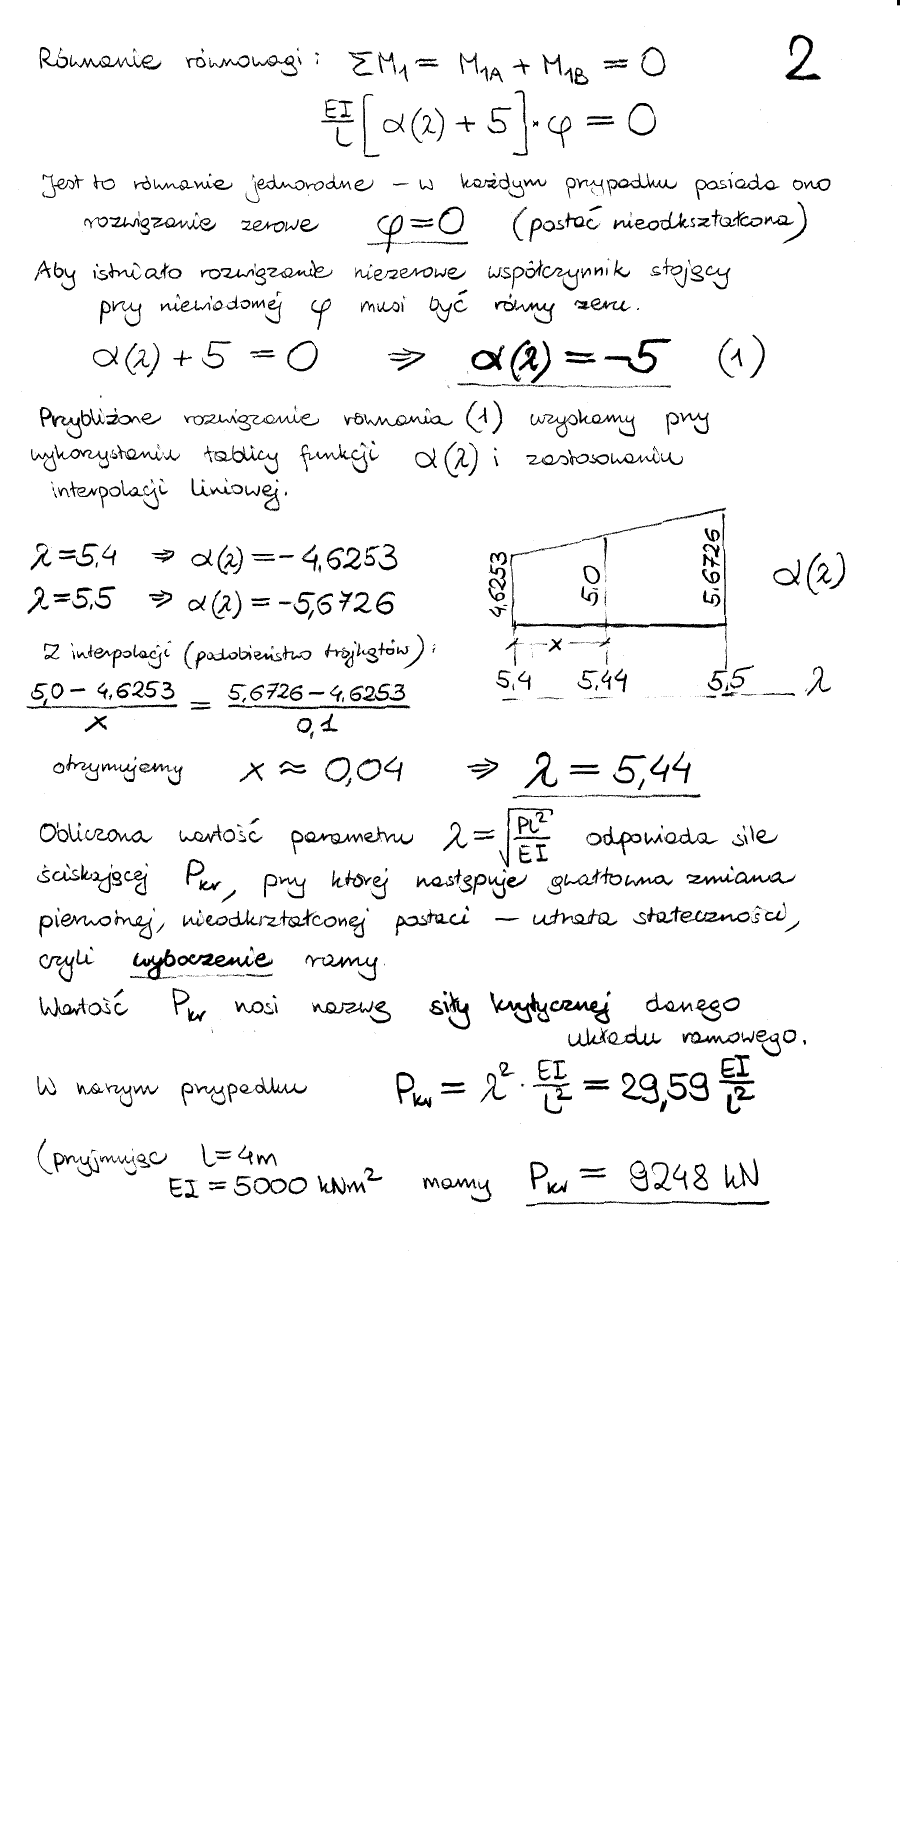 Równanie równowagi: ΣM₁ = M₁A + M₁B = 0
2
EI/l [α(λ) + 5]·φ = 0
Jest to równanie jednorodne – w każdym przypadku posiada ono
rozwiązanie zerowe φ=0 (postać nieodkształcona)
Aby istniało rozwiązanie niezerowe współczynnik stojący
przy niewiadomej φ musi być równy zeru.
α(λ) + 5 = 0 ⇒ α(λ) = -5 (1)
Przybliżone rozwiązanie równania (1) uzyskamy przy
wykorzystaniu tablicy funkcji α(λ) i zastosowaniu
interpolacji liniowej.
λ=5,4 ⇒ α(λ) = -4,6253
λ=5,5 ⇒ α(λ) = -5,6726
Z interpolacji (podobieństwo trójkątów):
(5,0 - 4,6253)/x = (5,6726 - 4,6253)/0,1
4,6253 5,0 5,6726 α(λ)
x
5,4 5,44 5,5 λ
otrzymujemy x ≈ 0,04 ⇒ λ = 5,44
Obliczona wartość parametru λ = √(Pl²/EI) odpowiada sile
ściskającej Pkr, przy której następuje gwałtowna zmiana
pierwotnej, nieodkształconej postaci – utrata stateczności,
czyli wyboczenie ramy.
Wartość Pkr nosi nazwę siły krytycznej danego
układu ramowego.
W naszym przypadku Pkr = λ² · EI/l² = 29,59 EI/l²
(przyjmując l=4m
EI = 5000 kNm² mamy Pkr = 9248 kN